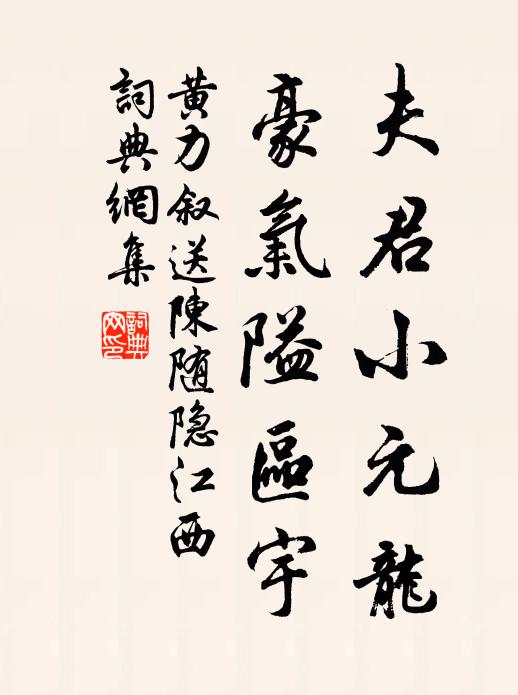 夫君小元龍
豪氣隘區宇
黄力叙送陳随隐江西
詞典網集
詞典網印